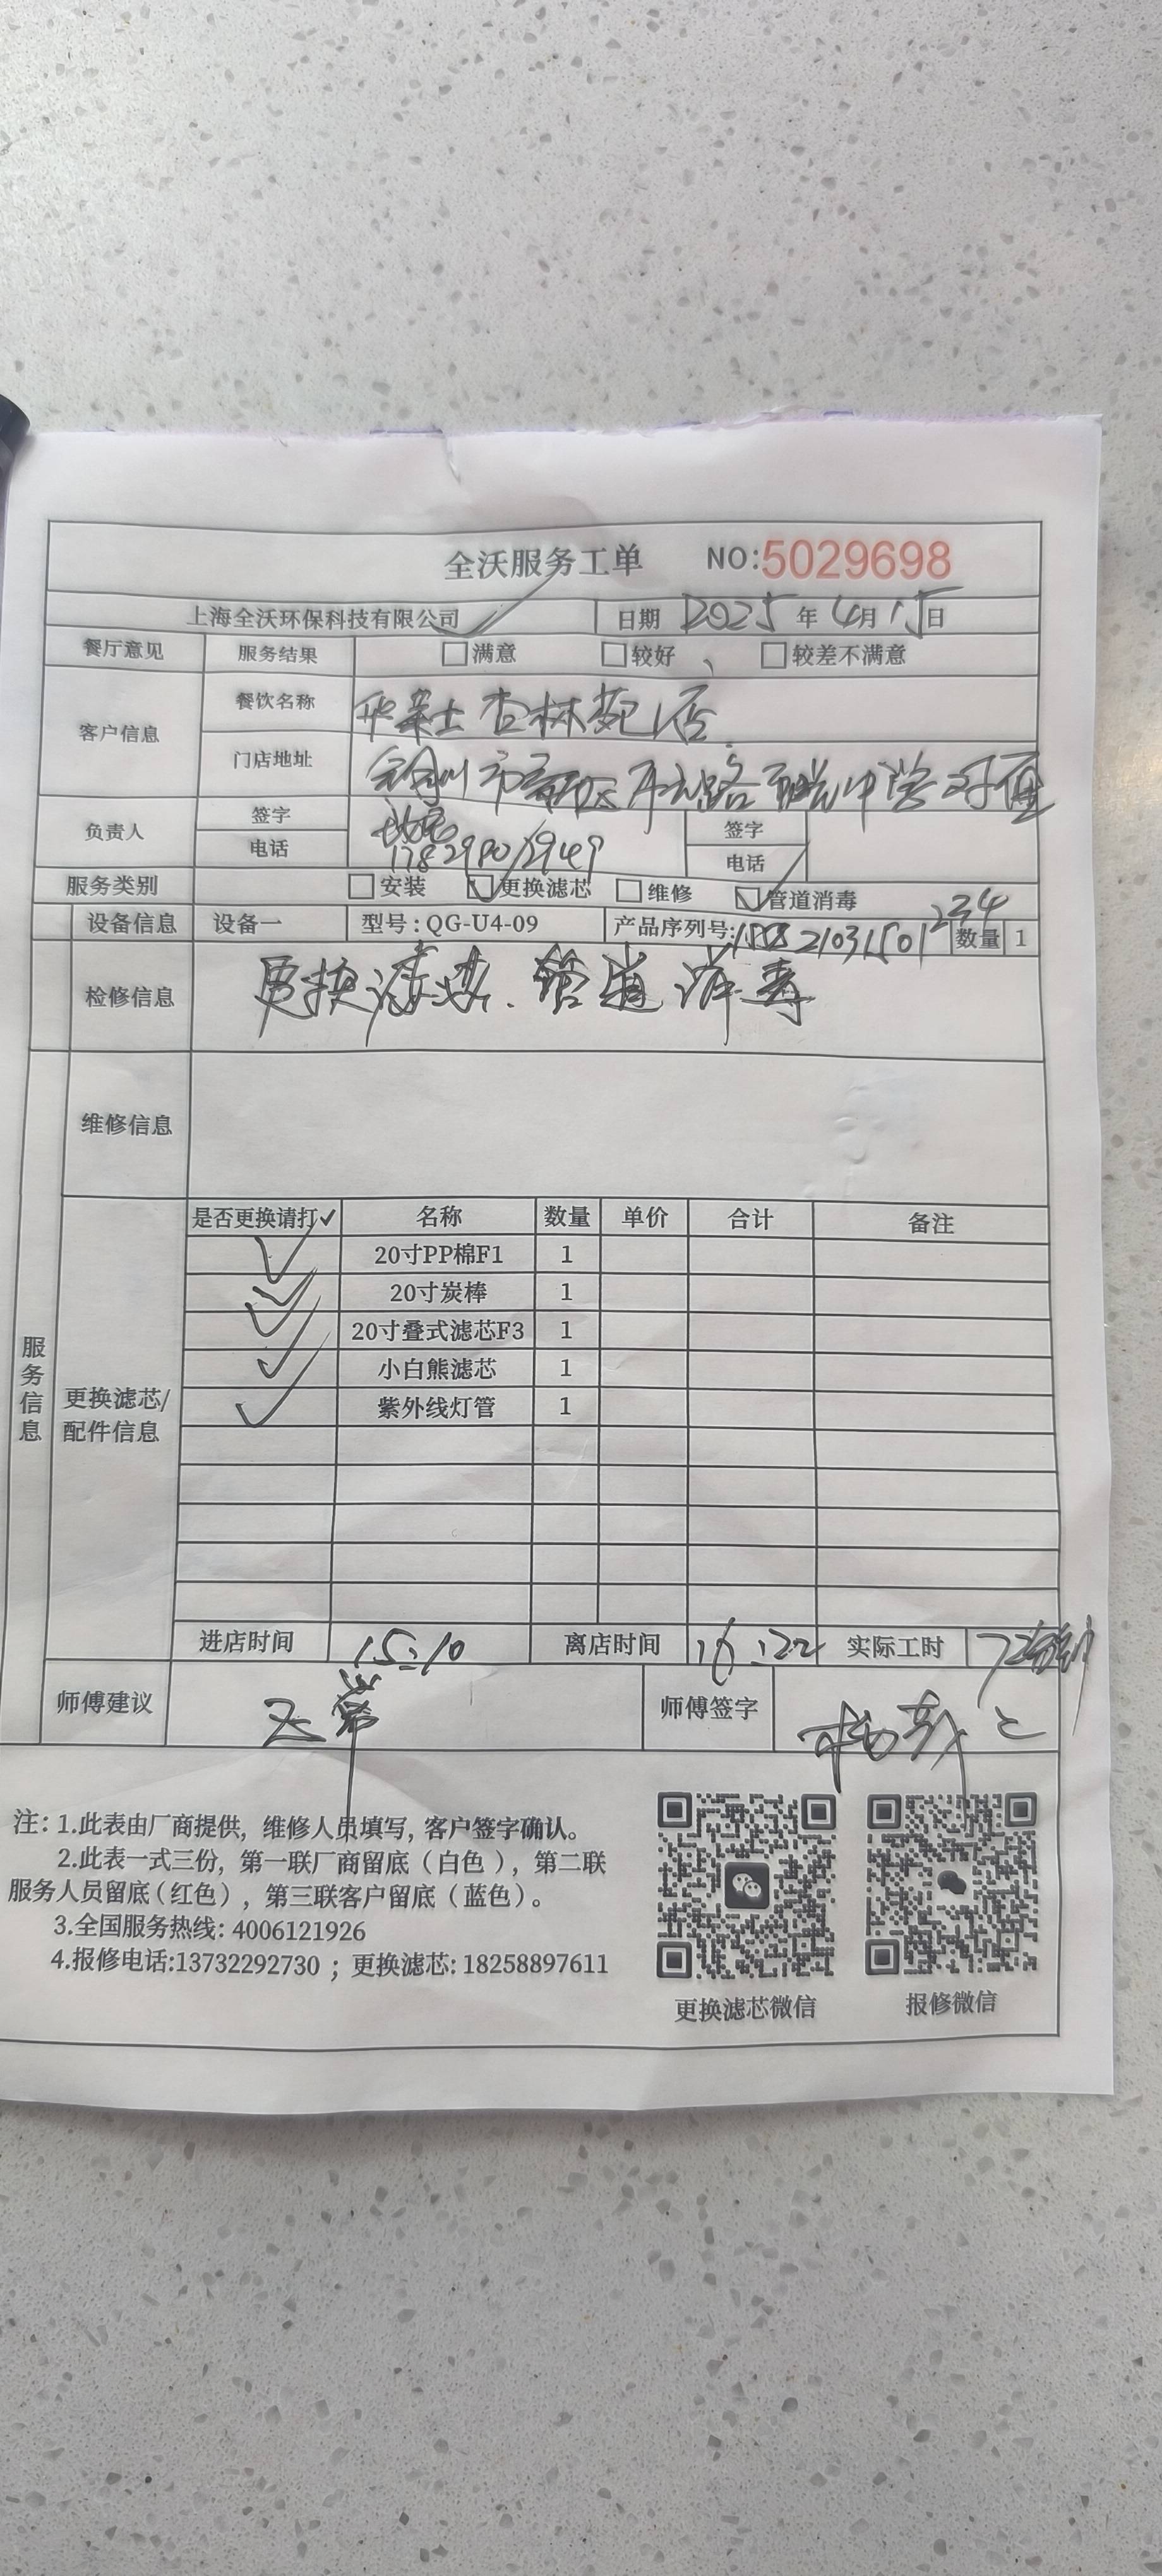 全沃服务工单 NO:5029698
上海全沃环保科技有限公司 日期 2025 年 4月 15日
餐厅意见 服务结果 满意 较好 较差不满意
客户信息 餐饮名称 杏林苑店
门店地址 市 路 对面
负责人 签字 签字
电话 电话
服务类别 安装 更换滤芯 维修 管道消毒
设备信息 设备一 型号:QG-U4-09 产品序列号: 数量 1
检修信息 更换滤芯、管道消毒
维修信息
服务信息
更换滤芯/配件信息
是否更换请打✓ 名称 数量 单价 合计 备注
✓ 20寸PP棉F1 1
✓ 20寸炭棒 1
✓ 20寸叠式滤芯F3 1
✓ 小白熊滤芯 1
✓ 紫外线灯管 1
进店时间 15:10 离店时间 16:22 实际工时 72分钟
师傅建议 正常 师傅签字
注: 1.此表由厂商提供, 维修人员填写, 客户签字确认。
2.此表一式三份, 第一联厂商留底(白色), 第二联
服务人员留底(红色), 第三联客户留底(蓝色)。
3.全国服务热线: 4006121926
4.报修电话:13732292730 ; 更换滤芯: 18258897611
更换滤芯微信 报修微信